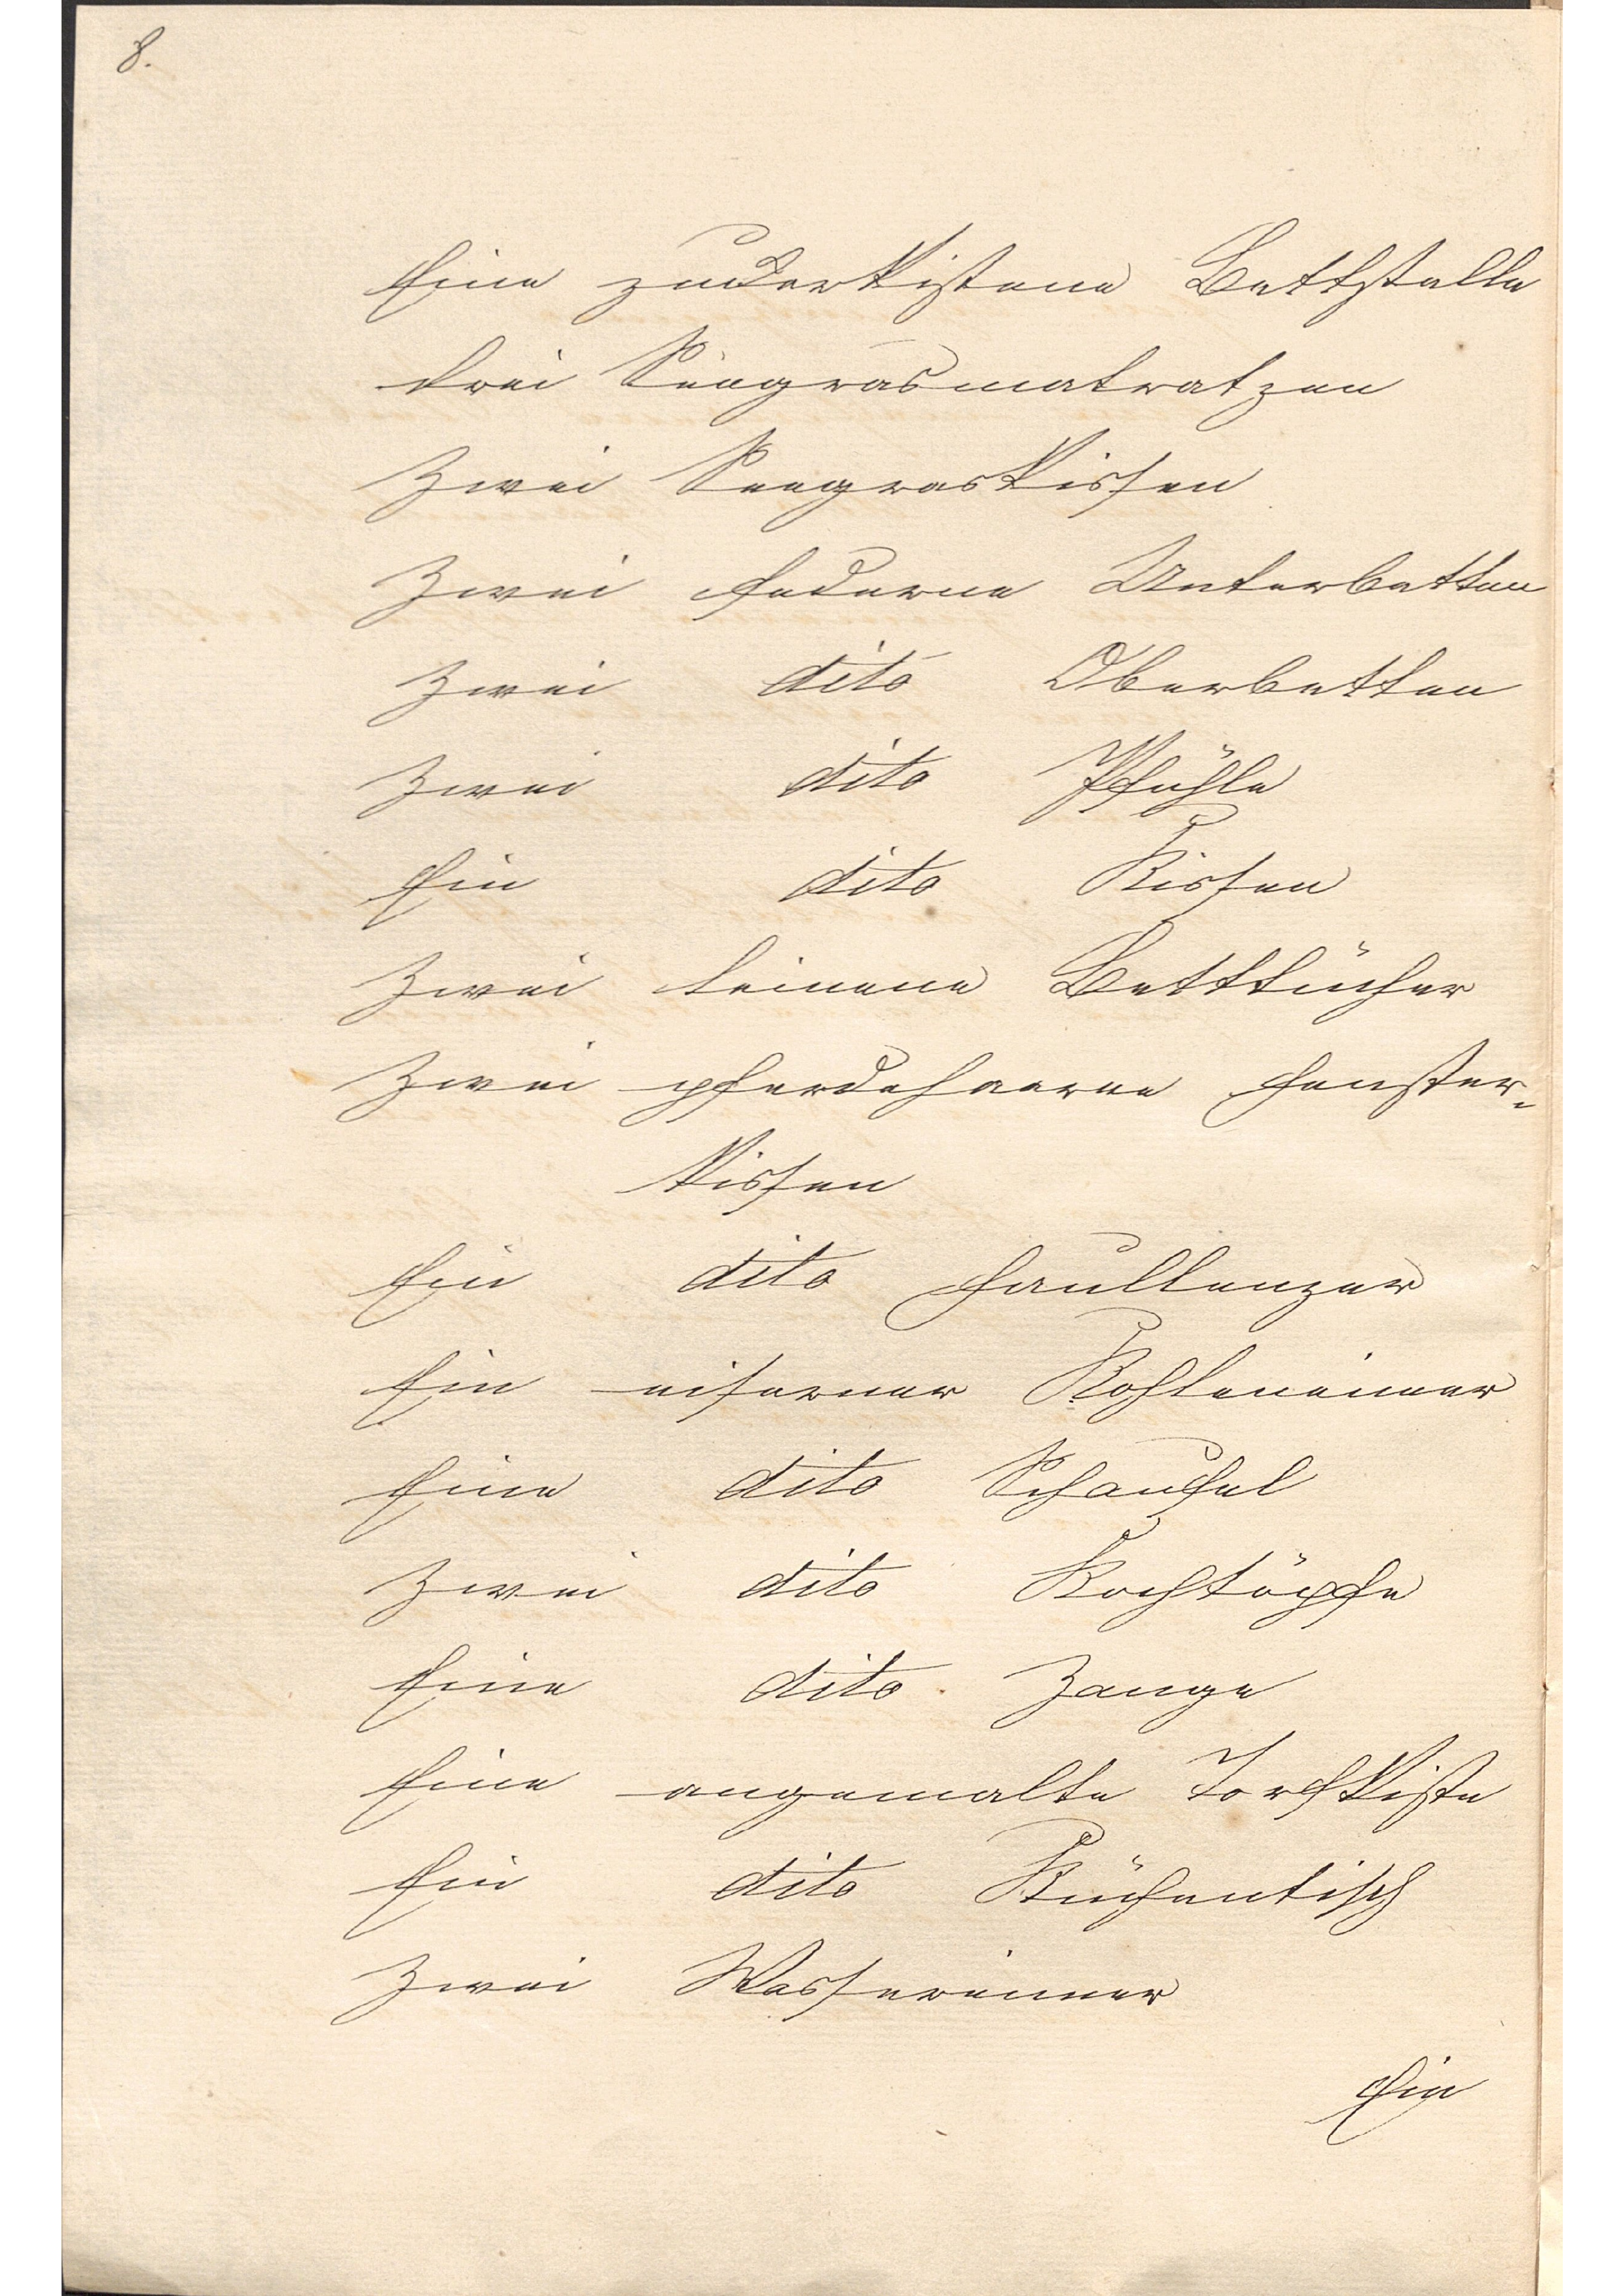 8.
Eine zuckerkistene Bettstelle
drei Seegrasmatratzen
Zwei Seegraskissen
Zwei federne Unterbetten
Zwei dito Oberbetten
Zwei dito Pfühle
Ein dito Kissen
Zwei leinene Betttücher
Zwei pferdehaarne Fenster-
kissen
Ein dito Faullenzer
Ein eiserner Kohleneimer
Eine dito Schaufel
Zwei dito Kochtöpfe
Eine dito Zange
Eine angemalte Torfkiste
Ein dito Küchentisch
Zwei Wassereimer
Ein